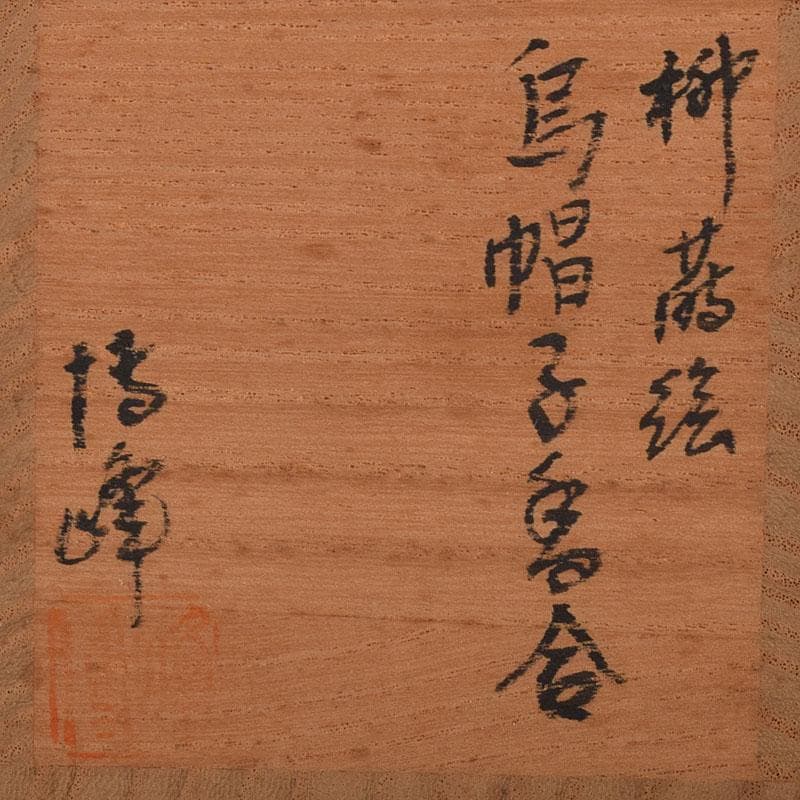 柳蒔絵
烏帽子香合
博峰